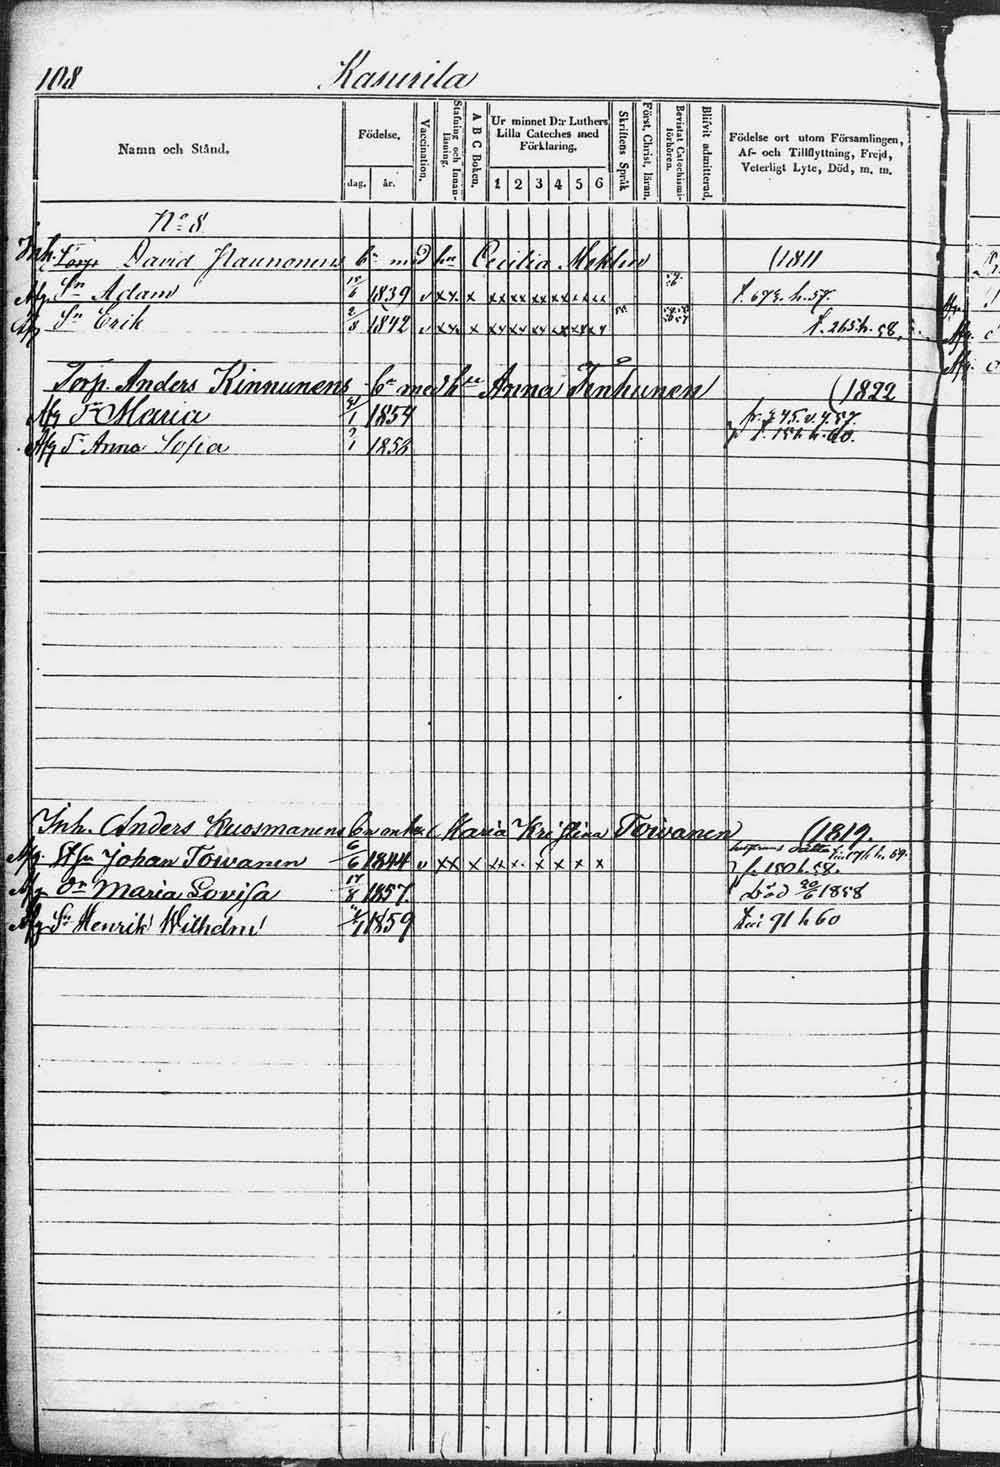 108 Kasurila
Namn och Stånd.
Födelse,
dag. år.
Vaccination.
Stafning och Innanläsning.
A B C Boken.
Ur minnet D:r Luthers Lilla Cateches med Förklaring.
1 2 3 4 5 6
Skriftens Språk
Först. Christ. läran.
Bevistat Catechismiförhören.
Blifvit admitterad.
Födelse ort utom Församlingen, Af- och Tillflyttning, Frejd, Veterligt Lyte, Död, m. m.
No 8
Inh. Torp David Haunonens bn med hn Cecilia Meklin (1811
Sn Adam 6 1839 v xx x xx xx xx xx xx xx f. 673. h. 57.
Sn Erik 2/8 1842 f. 265 h. 58,
Torp. Anders Kinnunens bn med hn Anna Tenhunen (1822
Dr Maria 1854
Dr Anna Sofia 1858
Inh. Anders Kuosmanens Maria Kristina Toivanen (1819.
Johan Toivanen 6/6 1844 v xx x xx x x x x x f. 150 h. 58.
Dr Maria Lovisa 17/8 1857. Död 20/6 1858
Sn Henrik Wilhelm 1859 91 h 60